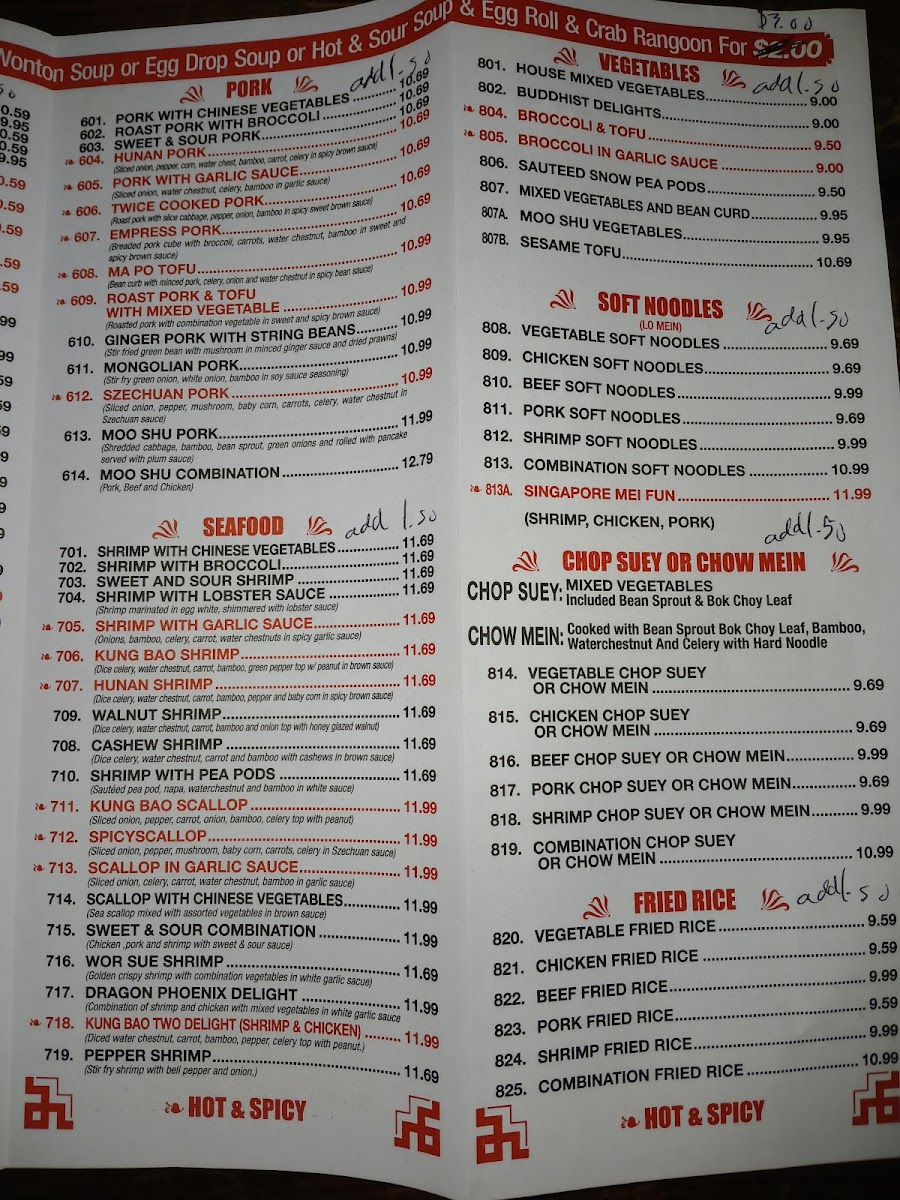 Wonton Soup or Egg Drop Soup or Hot & Sour Soup & Egg Roll & Crab Rangoon For $2.00
$3.00
0.59
9.95
0.59
0.59
9.95
PORK
add 1.50
601. PORK WITH CHINESE VEGETABLES 10.69
602. ROAST PORK WITH BROCCOLI 10.69
603. SWEET & SOUR PORK 10.69
604. HUNAN PORK 10.69
(Sliced onion, pepper, corn, water chest, bamboo, carrot, celery in spicy brown sauce)
605. PORK WITH GARLIC SAUCE 10.69
(Sliced onion, water chestnut, celery, bamboo in garlic sauce)
606. TWICE COOKED PORK 10.69
(Roast pork with slice cabbage, pepper, onion, bamboo in spicy sweet brown sauce)
607. EMPRESS PORK 10.69
(Breaded pork cube with broccoli, carrots, water chestnut, bamboo in sweet and
spicy brown sauce)
608. MA PO TOFU 10.99
(Bean curb with minced pork, celery, onion and water chestnut in spicy bean sauce)
609. ROAST PORK & TOFU
WITH MIXED VEGETABLE 10.99
(Roasted pork with combination vegetable in sweet and spicy brown sauce)
610. GINGER PORK WITH STRING BEANS 10.99
(Stir fried green bean with mushroom in minced ginger sauce and dried prawns)
611. MONGOLIAN PORK 10.99
(Stir fry green onion, white onion, bamboo in soy sauce seasoning)
612. SZECHUAN PORK 10.99
(Sliced onion, pepper, mushroom, baby corn, carrots, celery, water chestnut in
Szechuan sauce)
613. MOO SHU PORK 11.99
(Shredded cabbage, bamboo, bean sprout, green onions and rolled with pancake
served with plum sauce)
614. MOO SHU COMBINATION 12.79
(Pork, Beef and Chicken)
SEAFOOD
add 1.50
701. SHRIMP WITH CHINESE VEGETABLES 11.69
702. SHRIMP WITH BROCCOLI 11.69
703. SWEET AND SOUR SHRIMP 11.69
704. SHRIMP WITH LOBSTER SAUCE 11.69
(Shrimp marinated in egg white, shimmered with lobster sauce)
705. SHRIMP WITH GARLIC SAUCE 11.69
(Onions, bamboo, celery, carrot, water chestnuts in spicy garlic sauce)
706. KUNG BAO SHRIMP 11.69
(Dice celery, water chestnut, carrot, bamboo, green pepper top w/ peanut in brown sauce)
707. HUNAN SHRIMP 11.69
(Dice celery, water chestnut, carrot, bamboo, pepper and baby corn in spicy brown sauce)
709. WALNUT SHRIMP 11.69
(Dice celery, water chestnut, carrot, bamboo and onion top with honey glazed walnut)
708. CASHEW SHRIMP 11.69
(Dice celery, water chestnut, carrot and bamboo with cashews in brown sauce)
710. SHRIMP WITH PEA PODS 11.69
(Sautéed pea pod, napa, waterchestnut and bamboo in white sauce)
711. KUNG BAO SCALLOP 11.99
(Sliced onion, pepper, carrot, onion, bamboo, celery top with peanut)
712. SPICYSCALLOP 11.99
(Sliced onion, pepper, mushroom, baby corn, carrots, celery in Szechuan sauce)
713. SCALLOP IN GARLIC SAUCE 11.99
(Sliced onion, celery, carrot, water chestnut, bamboo in garlic sauce)
714. SCALLOP WITH CHINESE VEGETABLES 11.99
(Sea scallop mixed with assorted vegetables in brown sauce)
715. SWEET & SOUR COMBINATION 11.99
(Chicken ,pork and shrimp with sweet & sour sauce)
716. WOR SUE SHRIMP 11.69
(Golden crispy shrimp with combination vegetables in white garlic sacue)
717. DRAGON PHOENIX DELIGHT 11.99
(Combination of shrimp and chicken with mixed vegetables in white garlic sauce
718. KUNG BAO TWO DELIGHT (SHRIMP & CHICKEN) 11.99
(Diced water chestnut, carrot, bamboo, pepper, celery top with peanut.)
719. PEPPER SHRIMP 11.69
(Stir fry shrimp with bell pepper and onion.)
HOT & SPICY
VEGETABLES
add 1.50
801. HOUSE MIXED VEGETABLES 9.00
802. BUDDHIST DELIGHTS 9.00
804. BROCCOLI & TOFU 9.50
805. BROCCOLI IN GARLIC SAUCE 9.00
806. SAUTEED SNOW PEA PODS 9.50
807. MIXED VEGETABLES AND BEAN CURD 9.95
807A. MOO SHU VEGETABLES 9.95
807B. SESAME TOFU 10.69
SOFT NOODLES
(LO MEIN)
add 1.50
808. VEGETABLE SOFT NOODLES 9.69
809. CHICKEN SOFT NOODLES 9.69
810. BEEF SOFT NOODLES 9.99
811. PORK SOFT NOODLES 9.69
812. SHRIMP SOFT NOODLES 9.99
813. COMBINATION SOFT NOODLES 10.99
813A. SINGAPORE MEI FUN 11.99
(SHRIMP, CHICKEN, PORK)
add 1.50
CHOP SUEY OR CHOW MEIN
CHOP SUEY: MIXED VEGETABLES
Included Bean Sprout & Bok Choy Leaf
CHOW MEIN: Cooked with Bean Sprout Bok Choy Leaf, Bamboo,
Waterchestnut And Celery with Hard Noodle
814. VEGETABLE CHOP SUEY
OR CHOW MEIN 9.69
815. CHICKEN CHOP SUEY
OR CHOW MEIN 9.69
816. BEEF CHOP SUEY OR CHOW MEIN 9.99
817. PORK CHOP SUEY OR CHOW MEIN 9.69
818. SHRIMP CHOP SUEY OR CHOW MEIN 9.99
819. COMBINATION CHOP SUEY
OR CHOW MEIN 10.99
FRIED RICE
add 1.50
820. VEGETABLE FRIED RICE 9.59
821. CHICKEN FRIED RICE 9.59
822. BEEF FRIED RICE 9.99
823. PORK FRIED RICE 9.59
824. SHRIMP FRIED RICE 9.99
825. COMBINATION FRIED RICE 10.99
HOT & SPICY